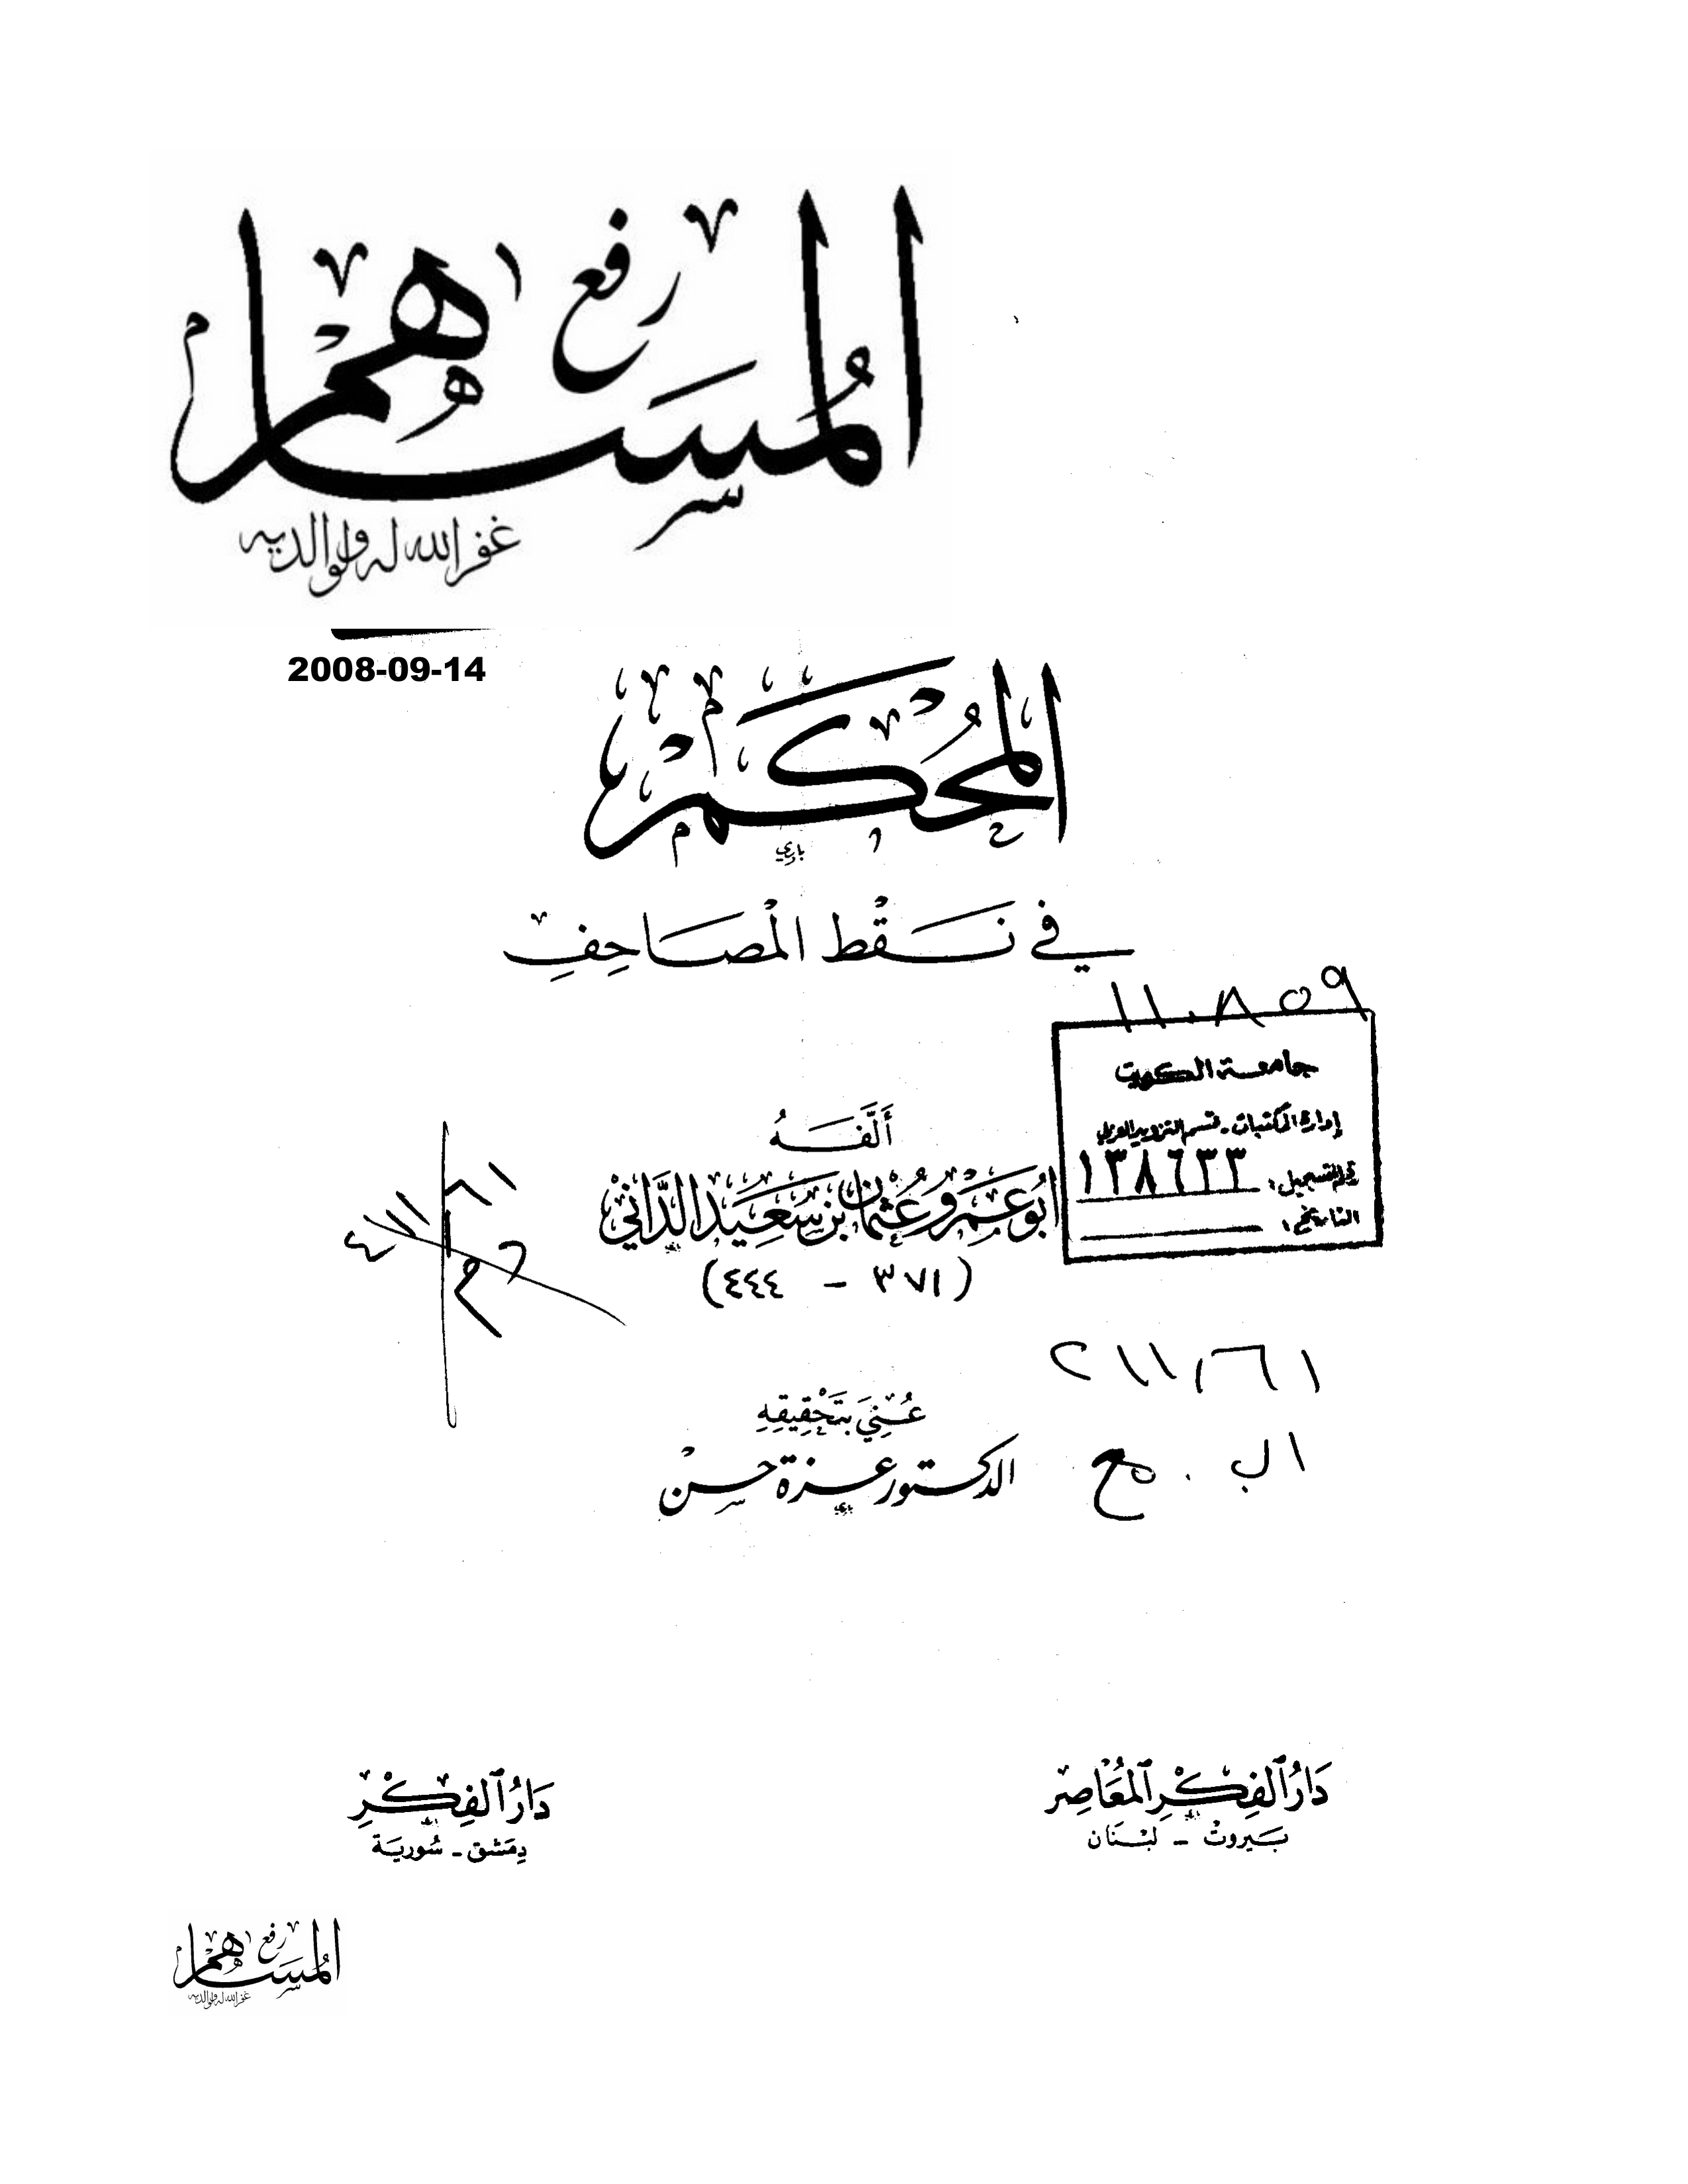 رفع
المساهم
غفر الله له ولوالديه
2008-09-14
المُحْكَمُ
في نَقْطِ المَصَاحِفِ
١١٠٨٥٩
جامعة الكويت
إدارة المكتبات - قسم التزويد العربي
رقم التسجيل: ١٣٨٦٣٣
التاريخ:
أَلَّفَهُ
أبو عَمْرو عُثْمان بن سَعيد الدَّاني
(٣٧١ - ٤٤٤)
عُنِيَ بتَحْقِيقِهِ
الدكتور عزة حسن
٢١١,٦١
دَارُ الفِكْرِ المُعَاصِر
بَيروتْ - لبْنَان
دَارُ الفِكْرِ
دِمَشق - سُورية
رفع
المساهم
غفر الله له ولوالديه